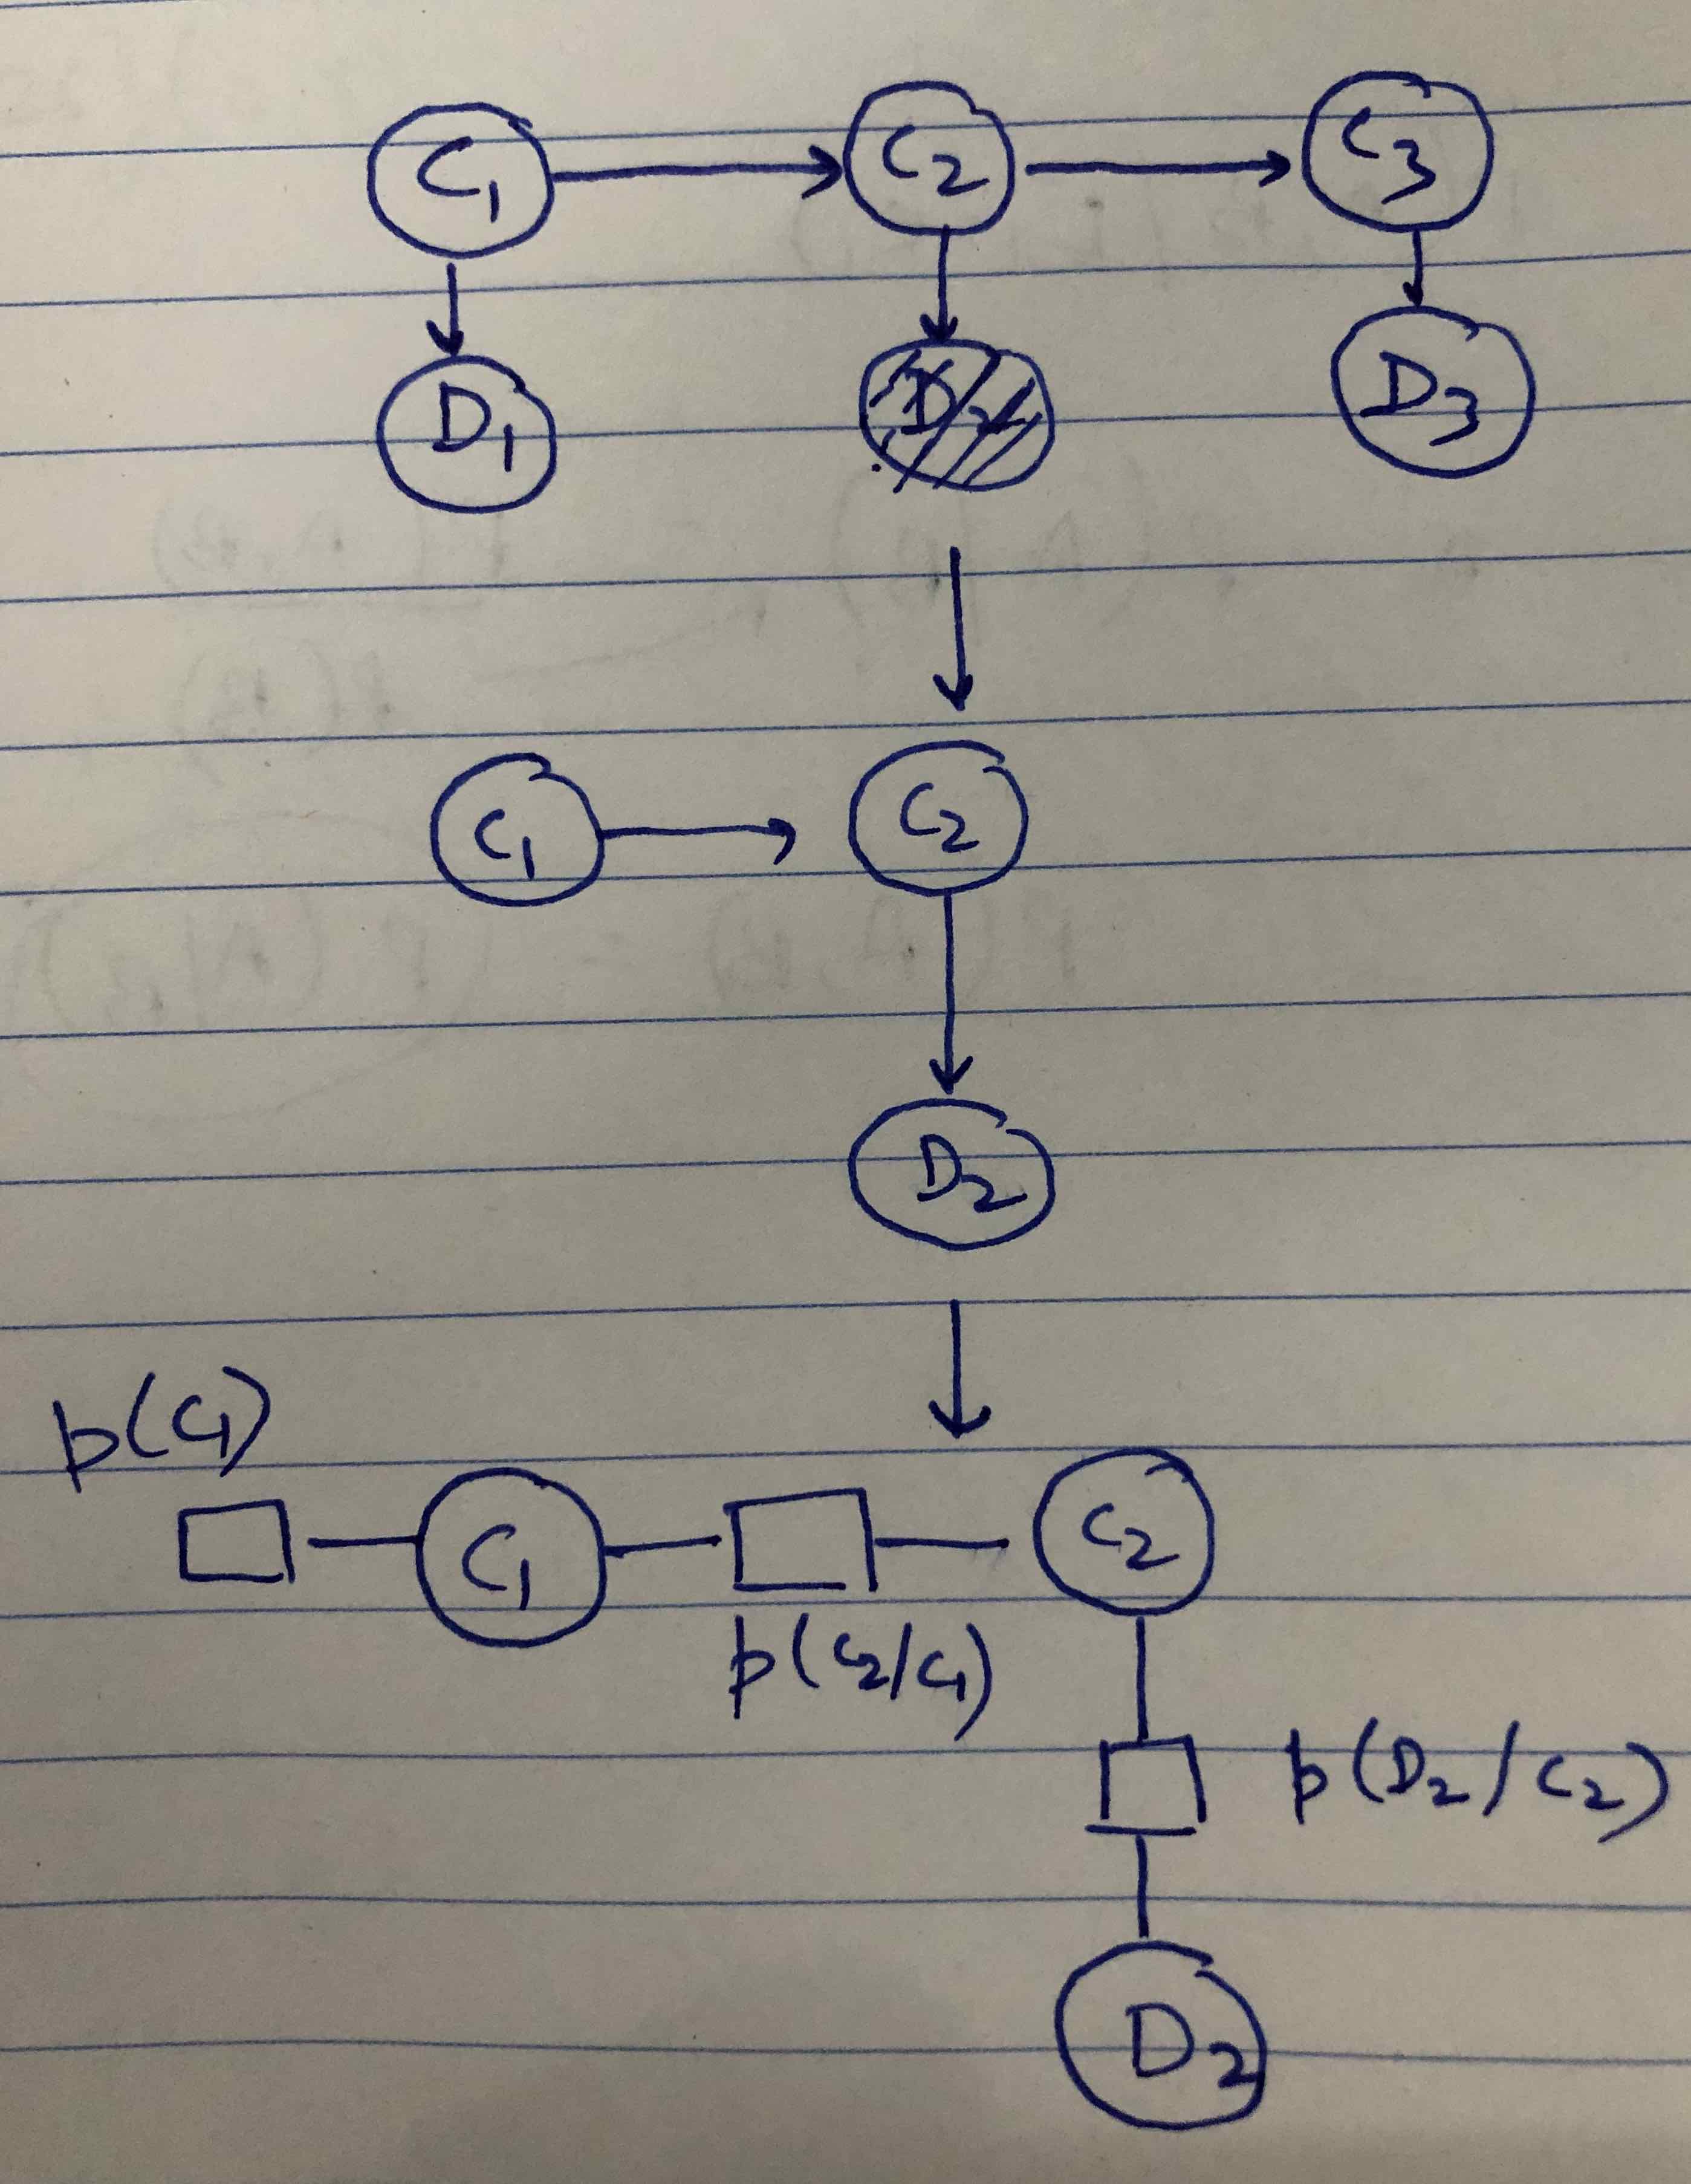 C1 C2 C3
D1 D2 D3
C1 C2
D2
p(C1)
C1 C2
p(C2/C1)
p(D2/C2)
D2